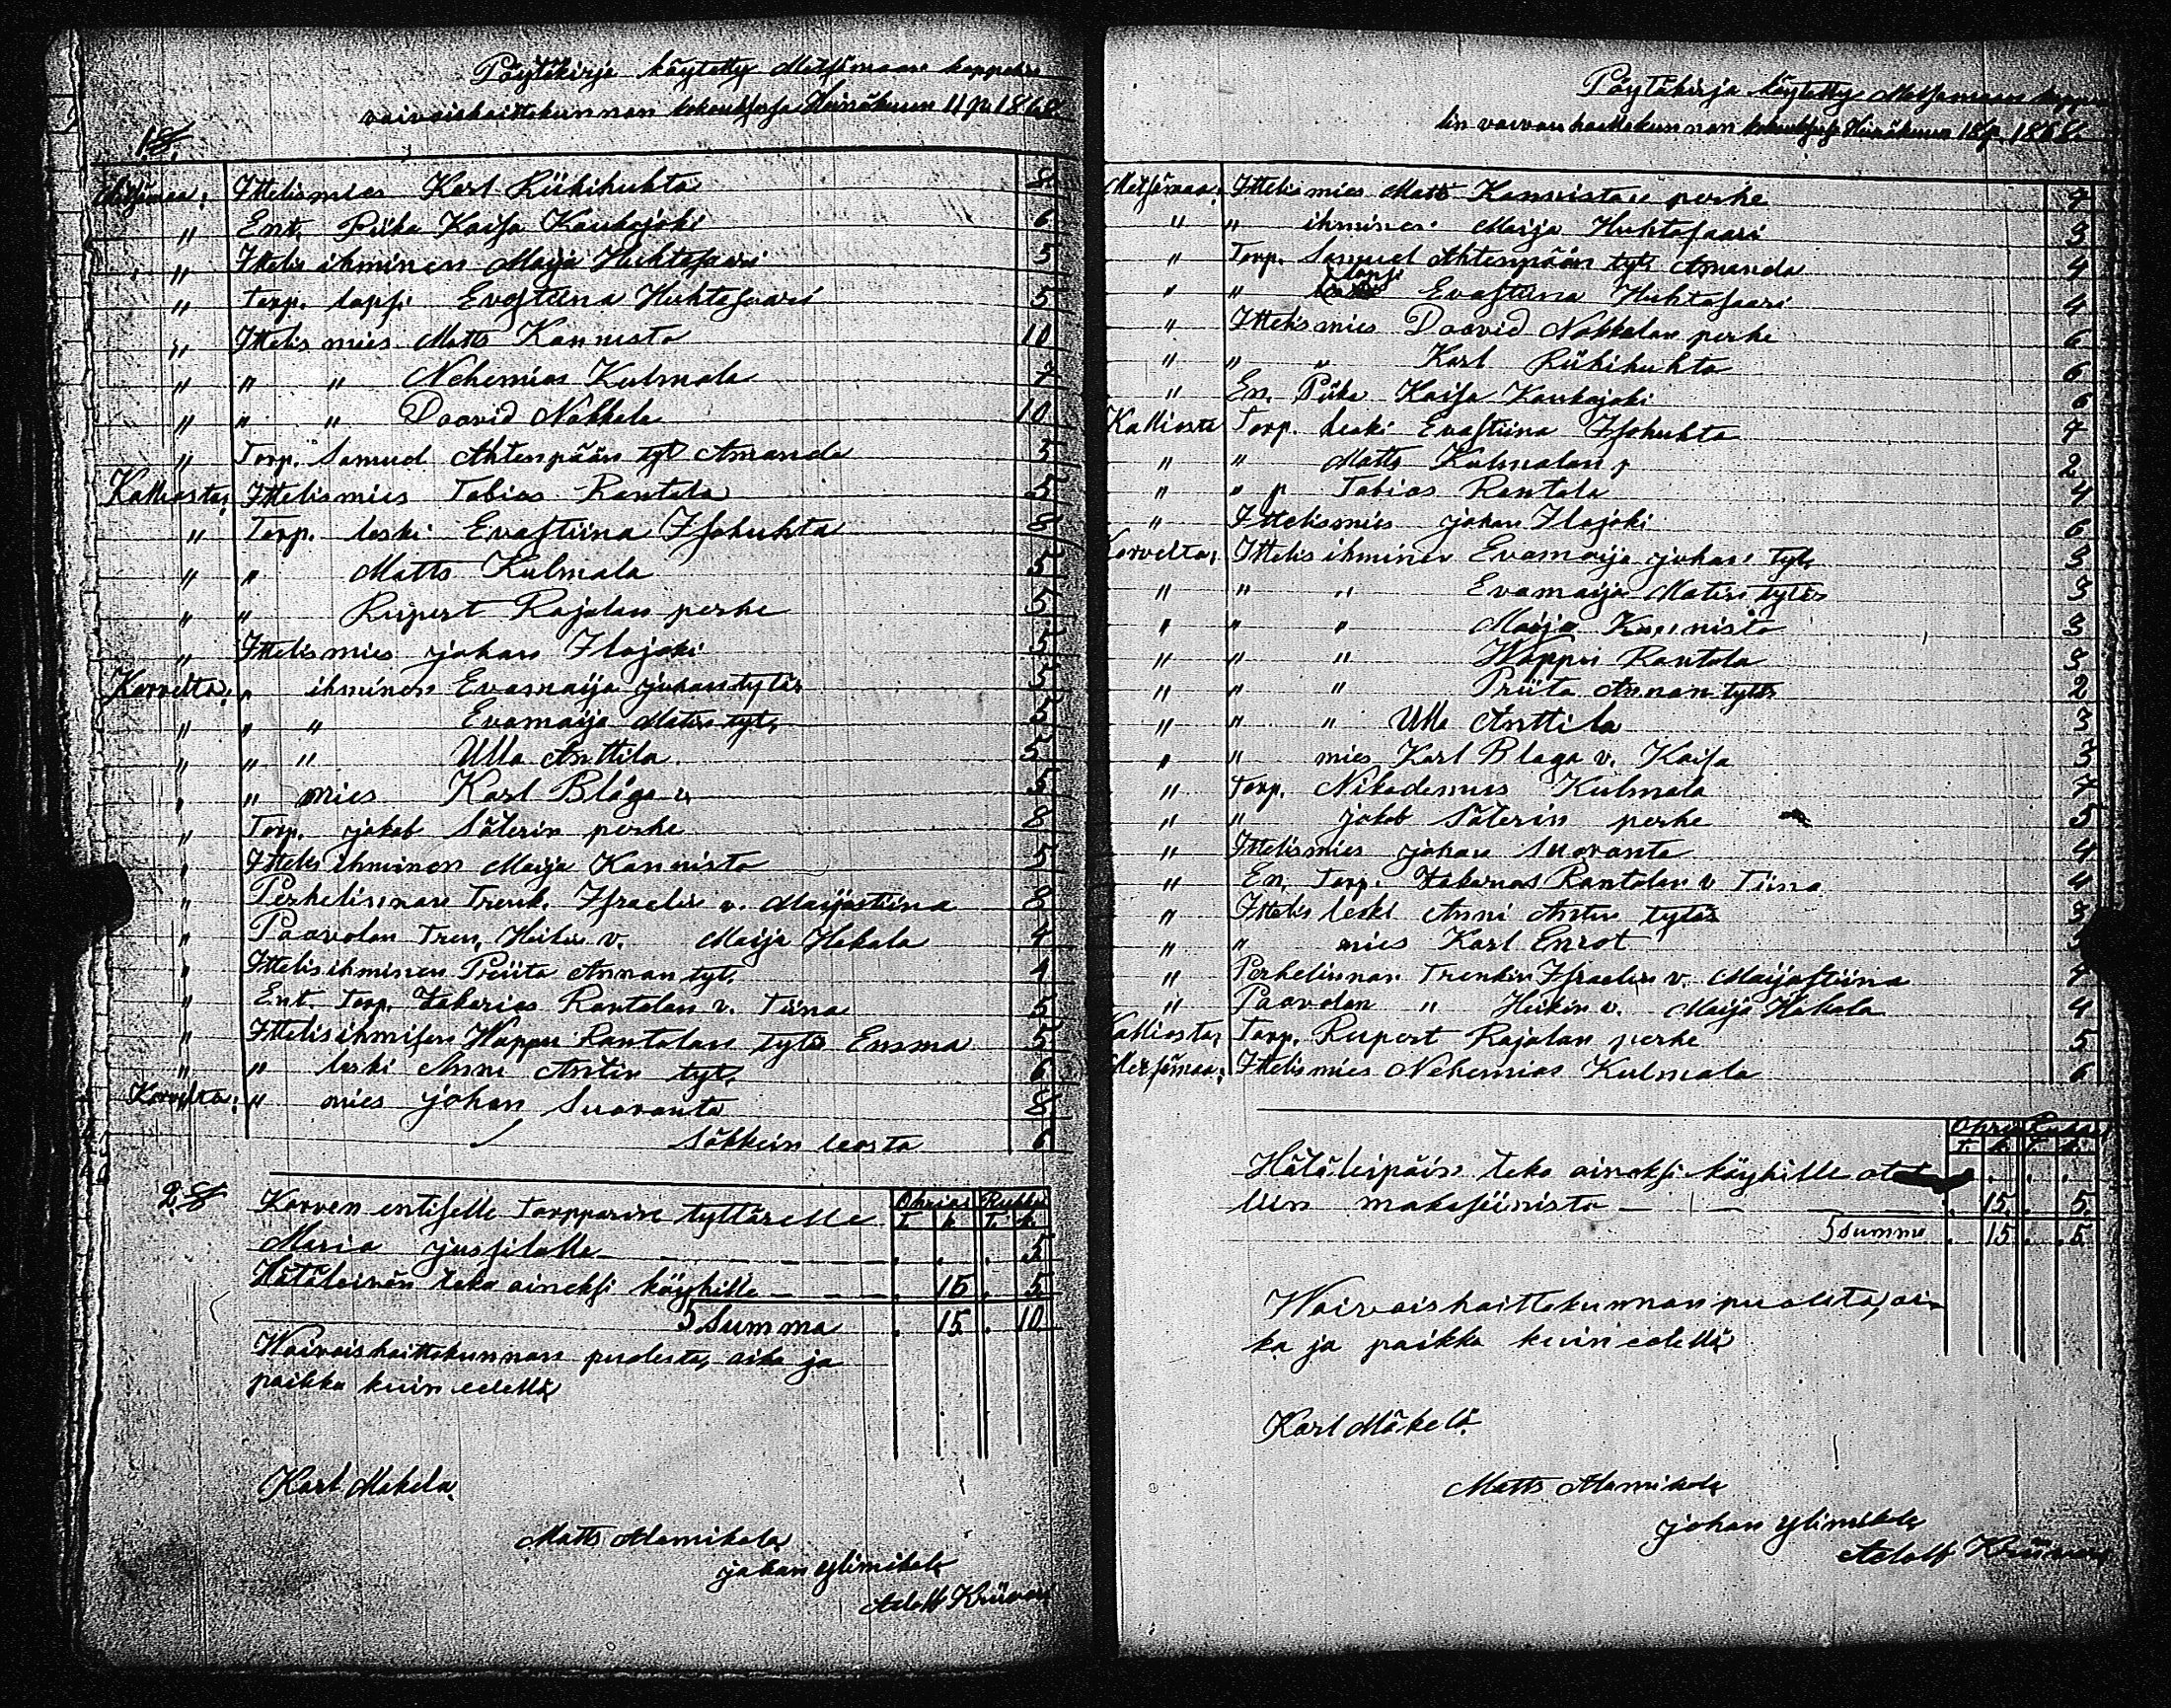 Pöytäkirja käytetty Metsämaan kappelin
vaivaishoittokunnan kokouksesa Heinäkuun 11 p. 1868.
1 §.
Metsämaa: Ittelismies Karl Riihihuhta 8
" Ent. Piika Kaisa Kaukojoki 6
" Ittelis ihminen Maija Huhtasaari 5
" Torp. lapsi Evastiina Huhtasaari 5
" Ittelis mies Matts Kannisto 10
" " " Nehemias Kulmala 7
" " " Daavid Nokkala 10
" Torp. Samuel Ahtenpään tyt Amanda 5
Kalliosta: Ittelismies Tobias Rantala 5
" Torp. leski Evastiina Isohuhta 8
" " Matts Kulmala 5
" " Rupert Rajalan perhe 5
" Ittelismies johan Ilojoki 5
Korvelta: " ihminen Evamaija juhan tytär 5
" " " Evamaija Matin tyt, 5
" " " Ulla Anttila 5
" " mies Karl Blåga v. 5
" Torp. jakob Säterin perhe 8
" Ittelis ihminen Maija Kannisto 5
" Perhelinnan Trenk. Israelin v. Maijastiina 8
" Paavolan Tren, Heikin v. Maija Hakala 4
" Ittelisihminen Priita Annan tyt. 4
" Ent. Torp. Zakarias Rantalan v. Tiina 5
" Ittelisihmisen Wappu Rantalan tytär Emma 5
" " leski Anni Antin tyt. 6
Korvelta: " mies johan Suovanta 8
Säkkein leasta 6
2 § Korven entiselle Torpparin tyttärelle Ohria Rukku
T. k. T. k.
Maria jussilalle — . . . 5
Hätäleivän teko aineksi köyhille — — — . 15 . 5
Summa . 15 . 10
Waivaishoittokunnan puolesta, aika ja
paikka kuin edellä
Karl Mäkelä.
Matts Alamikola
johan ylimikola
Adolf Kriivari
Pöytäkirja käytetty Metsämaan kappe
lin vaivaishoittokunnan kokouksesa Heinäkuun 18 p. 1868.
Metsämaa: Ittelismies Matts Kannistan perhe 7
" " ihminen Maija Huhtasaari 3
" Torp. Samuel Ahtenpään tyt. Amanda 4
" " lapsi Evastiina Huhtasaari 4
" Ittelismies Daavid Nokkalan perhe 6
" " " Karl Riihihuhta 6
" En. Piika Kaisa Kaukojoki 6
Kalliosta Torp. leski Evastiina Isohuhta 7
" " Matts Kulmalan p 2
" " p Tobias Rantala 4
" Ittelismies johan Ilojoki 6
Korvelta: Ittelis ihminen Evamaija juhan tyt, 3
" " " Evamaija Matin tytär 3
" " " Maija Kannisto 3
" " " Wappu Rantala 3
" " " Priita Annan tytär 2
" " " Ulla Anttila 3
" " mies Karl Blaga v. Kaisa 3
" Torp. Nikademus Kulmala 7
" " jakob Säterin perhe 5
" Ittelismies johan Suovanta 4
" En, Torp. Zakarias Rantalan v Tiina 4
" Ittelis leski Anni Antin tytär 3
" " mies Karl Enrot 3
" Perhelinnan Trenkin Israelin v. Maijastiina 7
" Paavolan " Heikin v. Maija Hakala 4
Kalliosta, Torp. Rupert Rajalan perhe 5
Metsämaa: Ittelismies Nehemias Kulmala 6
Ohria Rukku
T. k. T. k.
Hätäleipäin teko aineksi köyhille
liin makasiinista — — — . 15 . 5
Summa . 15 . 5
Waivaishoittokunnan puolesta, ai-
ka ja paikka kuin edellä
Karl Mäkelä.
Matts Alamikola
johan ylimikola
Adolf Kriivari